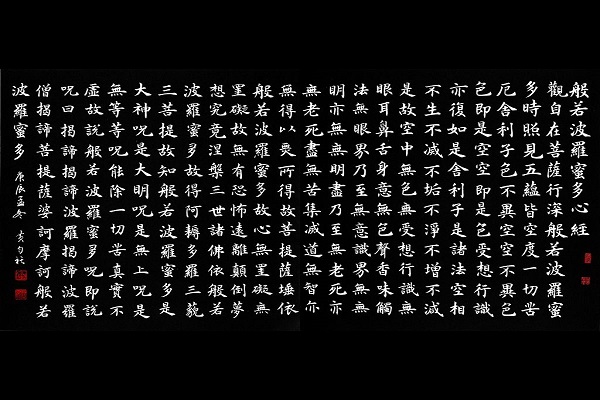 般若波羅蜜多心經
觀自在菩薩行深般若波羅蜜
多時照見五蘊皆空度一切苦
厄舍利子色不異空空不異色
色即是空空即是色受想行識
亦復如是舍利子是諸法空相
不生不滅不垢不淨不增不減
是故空中無色無受想行識無
眼耳鼻舌身意無色聲香味觸
法無眼界乃至無意識界無無
明亦無無明盡乃至無老死亦
無老死盡無苦集滅道無智亦
無得以無所得故菩提薩埵依
般若波羅蜜多故心無罣礙無
罣礙故無有恐怖遠離顛倒夢
想究竟涅槃三世諸佛依般若
波羅蜜多故得阿耨多羅三藐
三菩提故知般若波羅蜜多是
大神呪是大明呪是無上呪是
無等等呪能除一切苦真實不
虛故說般若波羅蜜多呪即說
呪曰揭諦揭諦波羅揭諦波羅
僧揭諦菩提薩婆訶摩訶般若
波羅蜜多 庚辰孟冬